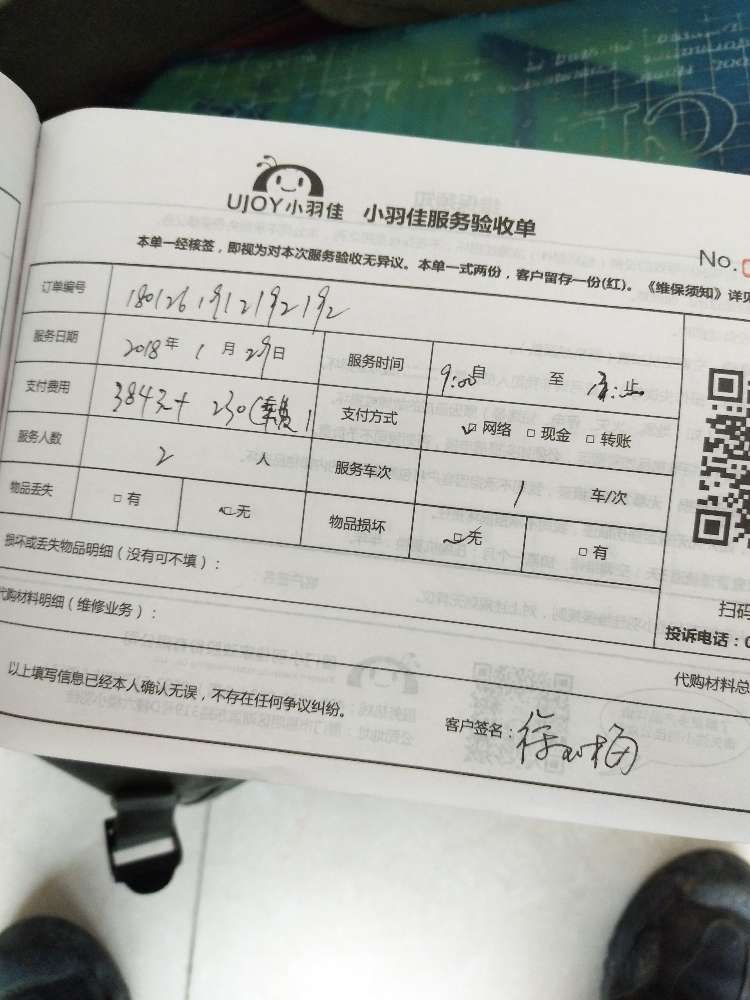 UJOY小羽佳 小羽佳服务验收单
No.
本单一经核签，即视为对本次服务验收无异议。本单一式两份，客户留存一份(红)。《维保须知》详见
订单编号 180126191219219
服务日期 2018年1月29日 服务时间 9:00自 至 止
支付费用 384元+230( 支付方式 网络 □现金 □转账
服务人数 2人 服务车次 1 车/次
物品丢失 □有 □无 物品损坏 □无 □有
损坏或丢失物品明细（没有可不填）：
扫码
代购材料明细（维修业务）：
投诉电话：0
代购材料总
以上填写信息已经本人确认无误，不存在任何争议纠纷。
客户签名：